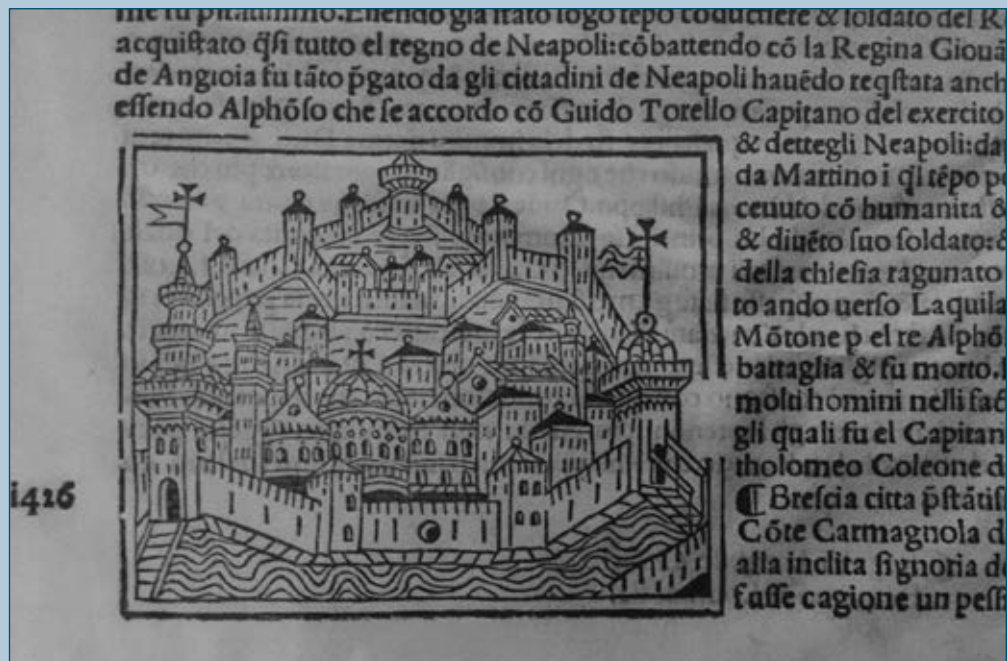 me fu pientissimo. Essendo gia stato logo tēpo coductiere & soldato del R
acquistato q̄si tutto el regno de Neapoli: cōbattendo cō la Regina Giouā
de Angioia fu tāto p̄gato da gli cittadini de Neapoli hauēdo reqstata anch
essendo Alphōso che se accordo cō Guido Torello Capitano del exercito
& dettegli Neapoli: da
da Martino ī q̄l tēpo pe
ceuuto cō humanita &
& diuēto suo soldato: &
della chiesia ragunato
to ando uerso Laquila
Mōtone p el re Alphō
battaglia & fu morto.
molti homini nelli fac
gli quali fu el Capitan
tholomeo Coleone d
i426
¶ Brescia citta p̄stātis
Cōte Carmagnola d
alla inclita signoria de
fusse cagione un pessi